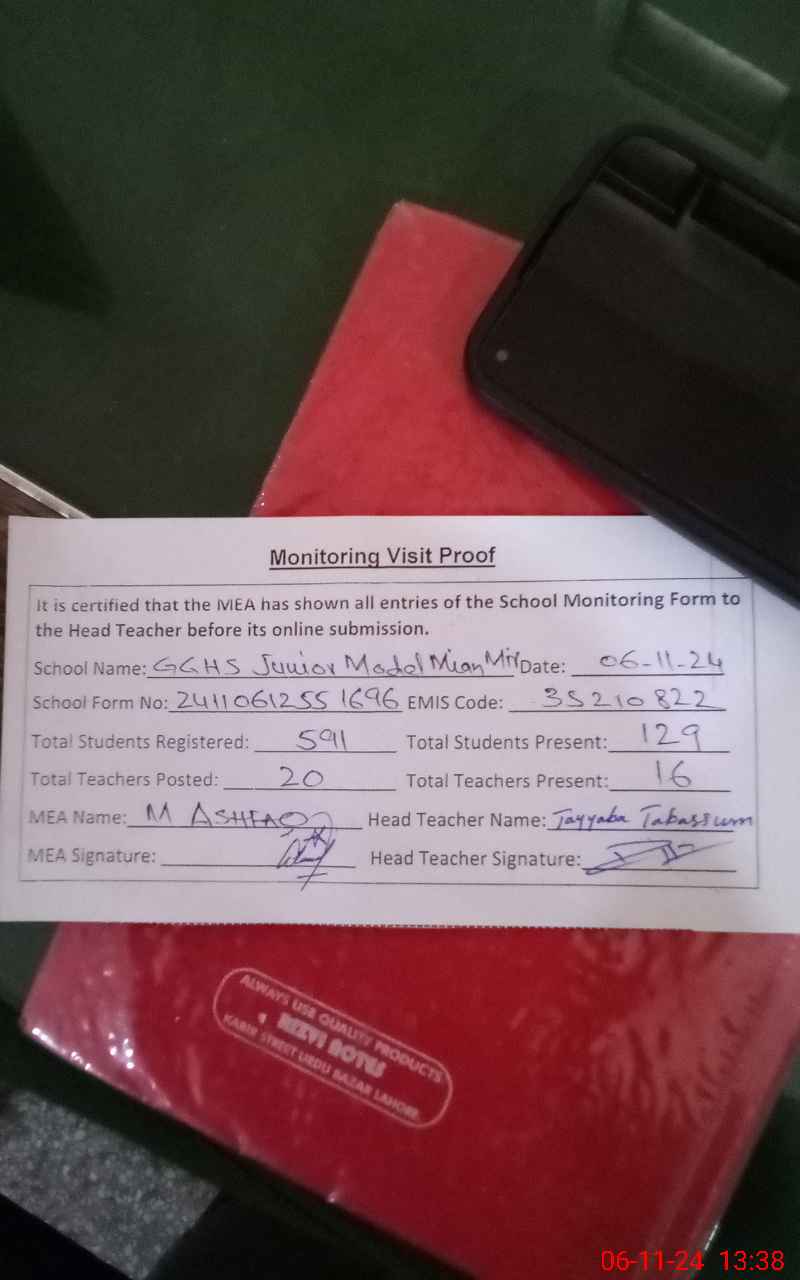 Monitoring Visit Proof
It is certified that the MEA has shown all entries of the School Monitoring Form to
the Head Teacher before its online submission.
School Name: GGHS Junior Model Mian Mir Date: 06-11-24
School Form No: 24110612551696 EMIS Code: 35210822
Total Students Registered: 591 Total Students Present: 129
Total Teachers Posted: 20 Total Teachers Present: 16
MEA Name: M ASHFAQ Head Teacher Name: Tayyaba Tabassum
MEA Signature: Head Teacher Signature:
ALWAYS USE QUALITY PRODUCTS
KABIR STREET URDU BAZAR LAHORE
06-11-24 13:38